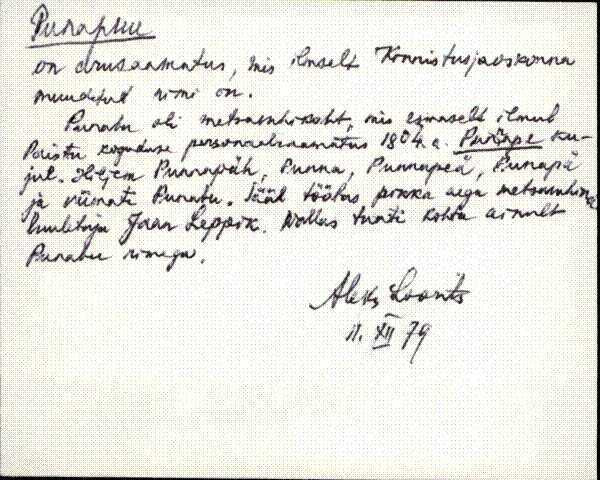 Punapuu
on arusaamatus, mis ilmselt Konnistusjaoskonna
muudetud nimi on.
Punabu oli metsavahikoht, mis esmaselt ilmub
Paistu koguduse personaalraamatus 1804. a. Punape ku-
jul. Hiljem Punnapäh, Punna, Punnapeä, Punapä
ja viimati Punabu. Sääl töötas pikka aega metsavahina
luuletaja Jaan Leppik. Vallas tunti kohta ainult
Punabu nimega.
Aleks. Loorits
11. XII 79